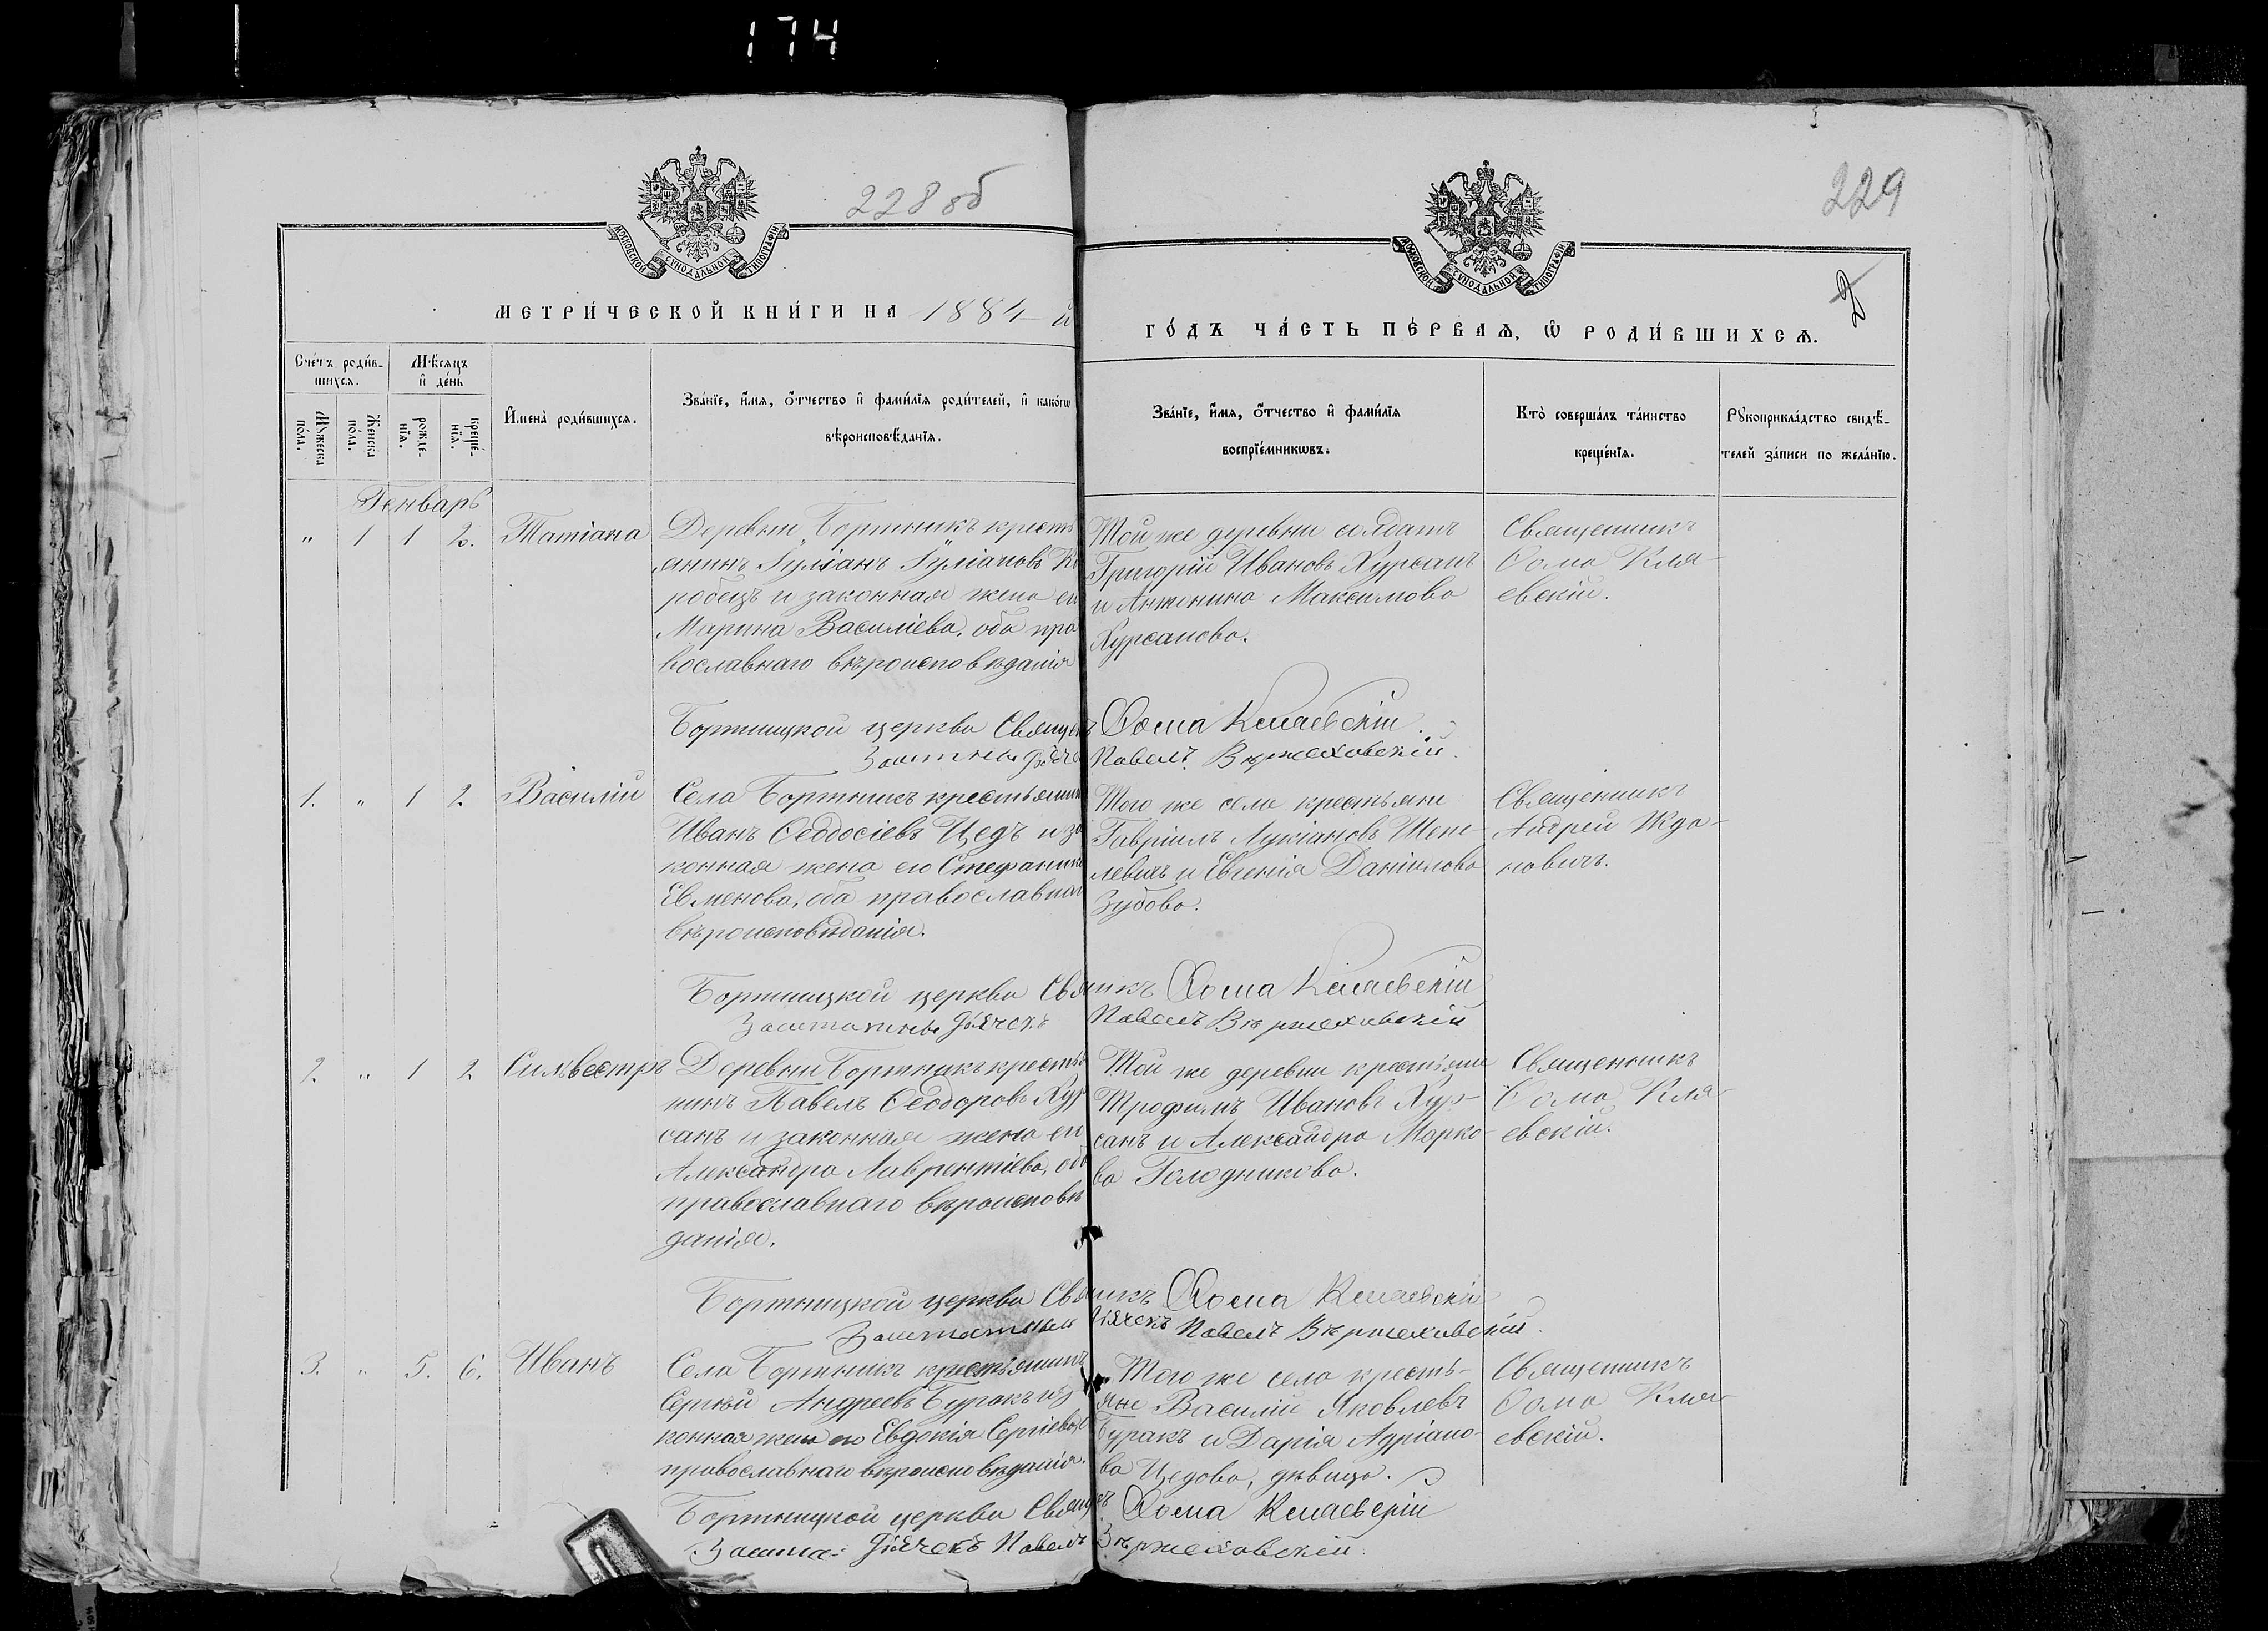 174
228 об
229
МОСКОВСКОЙ СѴНОДАЛЬНОЙ ТИПОГРАФІИ
МОСКОВСКОЙ СѴНОДАЛЬНОЙ ТИПОГРАФІИ
МЕТРИ́ЧЕСКОЙ КНИ́ГИ НА 1884 й
ГО́ДЪ ЧА́СТЬ ПЕ́РВАѦ, Ѡ҆ РОДИ́ВШИХСѦ.
2
Сче́тъ роди́в-
шихсѧ.
Мѣ́сѧцъ
и҆ де́нь
Мꙋ́жеска
по́ла.
Же́нска
по́ла.
рожде́-
нїѧ.
креще́-
нїѧ.
И҆мена̀ роди́вшихсѧ.
Зва́нїе, и҆́мѧ, ѻ҆́тчество и҆ фами́лїѧ роди́телей, и҆ како́гѡ
вѣроисповѣ́данїѧ.
Зва́нїе, и҆́мѧ, ѻ҆́тчество и҆ фами́лїѧ
воспрїе́мникѡвъ.
Кто̀ соверша́лъ та́инство
креще́нїѧ.
Рꙋкоприкла́дство свидѣ́-
телей за́писи по жела́нїю.
Генварь
" 1 1 2. Татіана
Деревни Бортникъ кресть
янинъ Іуліанъ Іуліановъ Ко
робецъ и законная жена ег
Марина Василіева, оба пра
вославнаго вѣроисповѣданія
Той же деревни солдатъ
Григорій Ивановъ Хурсанъ
и Антонина Максимова
Хурсанова.
Священникъ
Ѳома Кля-
евскій.
Бортницкой церкви Священ Ѳома Кляевскій
Заштатны Дьячо Павелъ Вержеховскій.
1. " 1 2. Василій
Села Бортникъ крестьянин
Иванъ Ѳеодосіевъ Цедъ и за
конная жена его Стефанида
Евменова, оба православнаг
вѣроисповѣданія.
Того же села крестьяне
Гавріилъ Лукіановъ Шепе-
левичъ и Евгенія Даніилова
Зубова.
Священникъ
Андрей Жда-
новичъ.
Бортницкой церкви Священикъ Ѳома Кляевскій
Заштатны Дьячекъ Павелъ Вержеховскій
2. " 1 2. Сильвестръ
Деревни Бортникъ крестья
нинъ Павелъ Ѳеодоровъ Хур
санъ и законная жена ег
Александра Лаврентіева, оба
православнаго вѣроисповѣ
данія.
Той же деревни крестьяне
Трофимъ Ивановъ Хур-
санъ и Александра Марко-
ва Голодникова.
Священникъ
Ѳома Кля-
евскій.
Бортницкой церкви Священикъ Ѳома Кляевскій
Заштатный Дьячекъ Павелъ Вержеховскій.
3. " 5. 6. Иванъ
Села Бортникъ крестьянинъ
Сергѣй Андреевъ Буракъ и за
конная жена его Евдокія Сергіева, о
православнаго вѣроисповѣданія.
Того же села кресть-
яне Василій Яковлевъ
Буракъ и Дарія Адріано-
ва Цедова, дѣвица.
Священникъ
Ѳома Кля-
евскій.
Бортницкой церкви Священ Ѳома Кляевскій
Зашта: Дьячекъ Павелъ Вержеховскій.